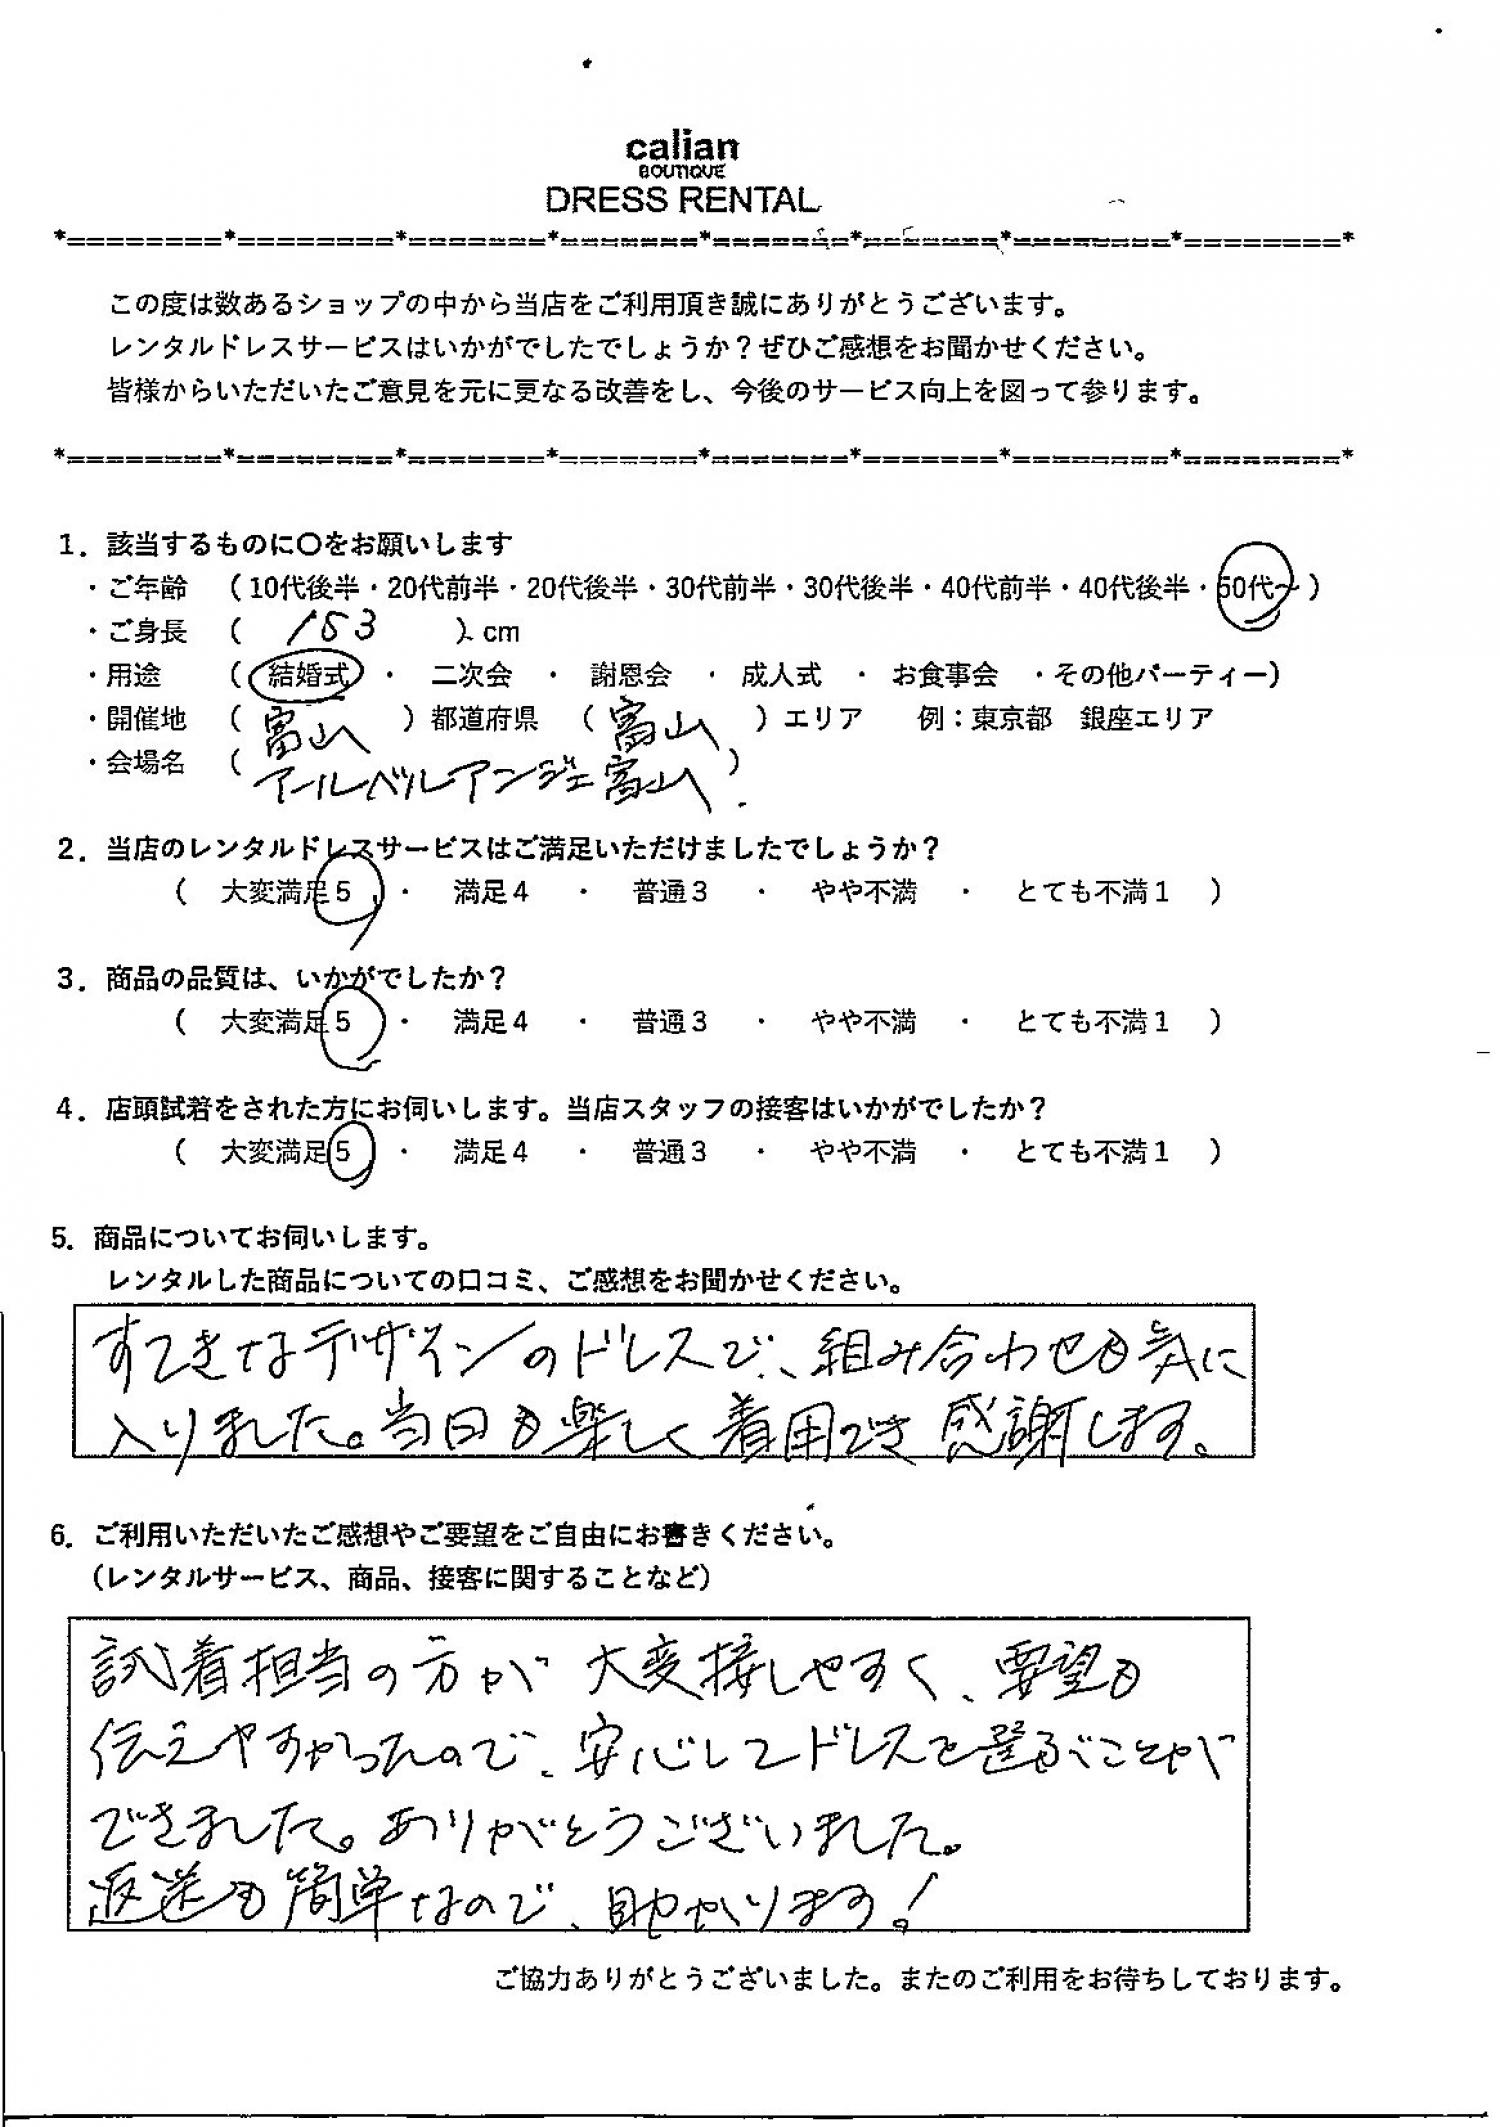 calian
BOUTIQUE
DRESS RENTAL
*========*========*=======*=======*=======*=======*========*========*
この度は数あるショップの中から当店をご利用頂き誠にありがとうございます。
レンタルドレスサービスはいかがでしたでしょうか？ぜひご感想をお聞かせください。
皆様からいただいたご意見を元に更なる改善をし、今後のサービス向上を図って参ります。
*========*========*=======*=======*=======*=======*========*========*
1．該当するものに〇をお願いします
・ご年齢 （10代後半・20代前半・20代後半・30代前半・30代後半・40代前半・40代後半・50代～）
・ご身長 （ 153 ）cm
・用途 （ 結婚式 ・ 二次会 ・ 謝恩会 ・ 成人式 ・ お食事会 ・その他パーティー）
・開催地 （ 富山 ）都道府県 （ 富山 ）エリア 例：東京都 銀座エリア
・会場名 （ アールベルアンジェ富山 ）
2．当店のレンタルドレスサービスはご満足いただけましたでしょうか？
（ 大変満足5 ・ 満足4 ・ 普通3 ・ やや不満 ・ とても不満1 ）
3．商品の品質は、いかがでしたか？
（ 大変満足5 ・ 満足4 ・ 普通3 ・ やや不満 ・ とても不満1 ）
4．店頭試着をされた方にお伺いします。当店スタッフの接客はいかがでしたか？
（ 大変満足5 ・ 満足4 ・ 普通3 ・ やや不満 ・ とても不満1 ）
5．商品についてお伺いします。
レンタルした商品についての口コミ、ご感想をお聞かせください。
すてきなデザインのドレスで、組み合わせも気に
入りました。当日も楽しく着用でき感謝します。
6．ご利用いただいたご感想やご要望をご自由にお書きください。
（レンタルサービス、商品、接客に関することなど）
試着担当の方が大変接しやすく、要望も
伝えやすかったので、安心してドレスを選ぶことが
できました。ありがとうございました。
返送も簡単なので、助かります！
ご協力ありがとうございました。またのご利用をお待ちしております。